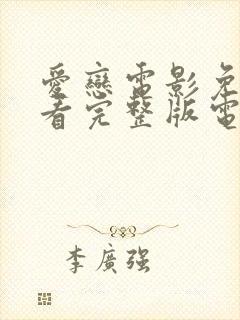 愛戀電影免
看完整版電
李廣强